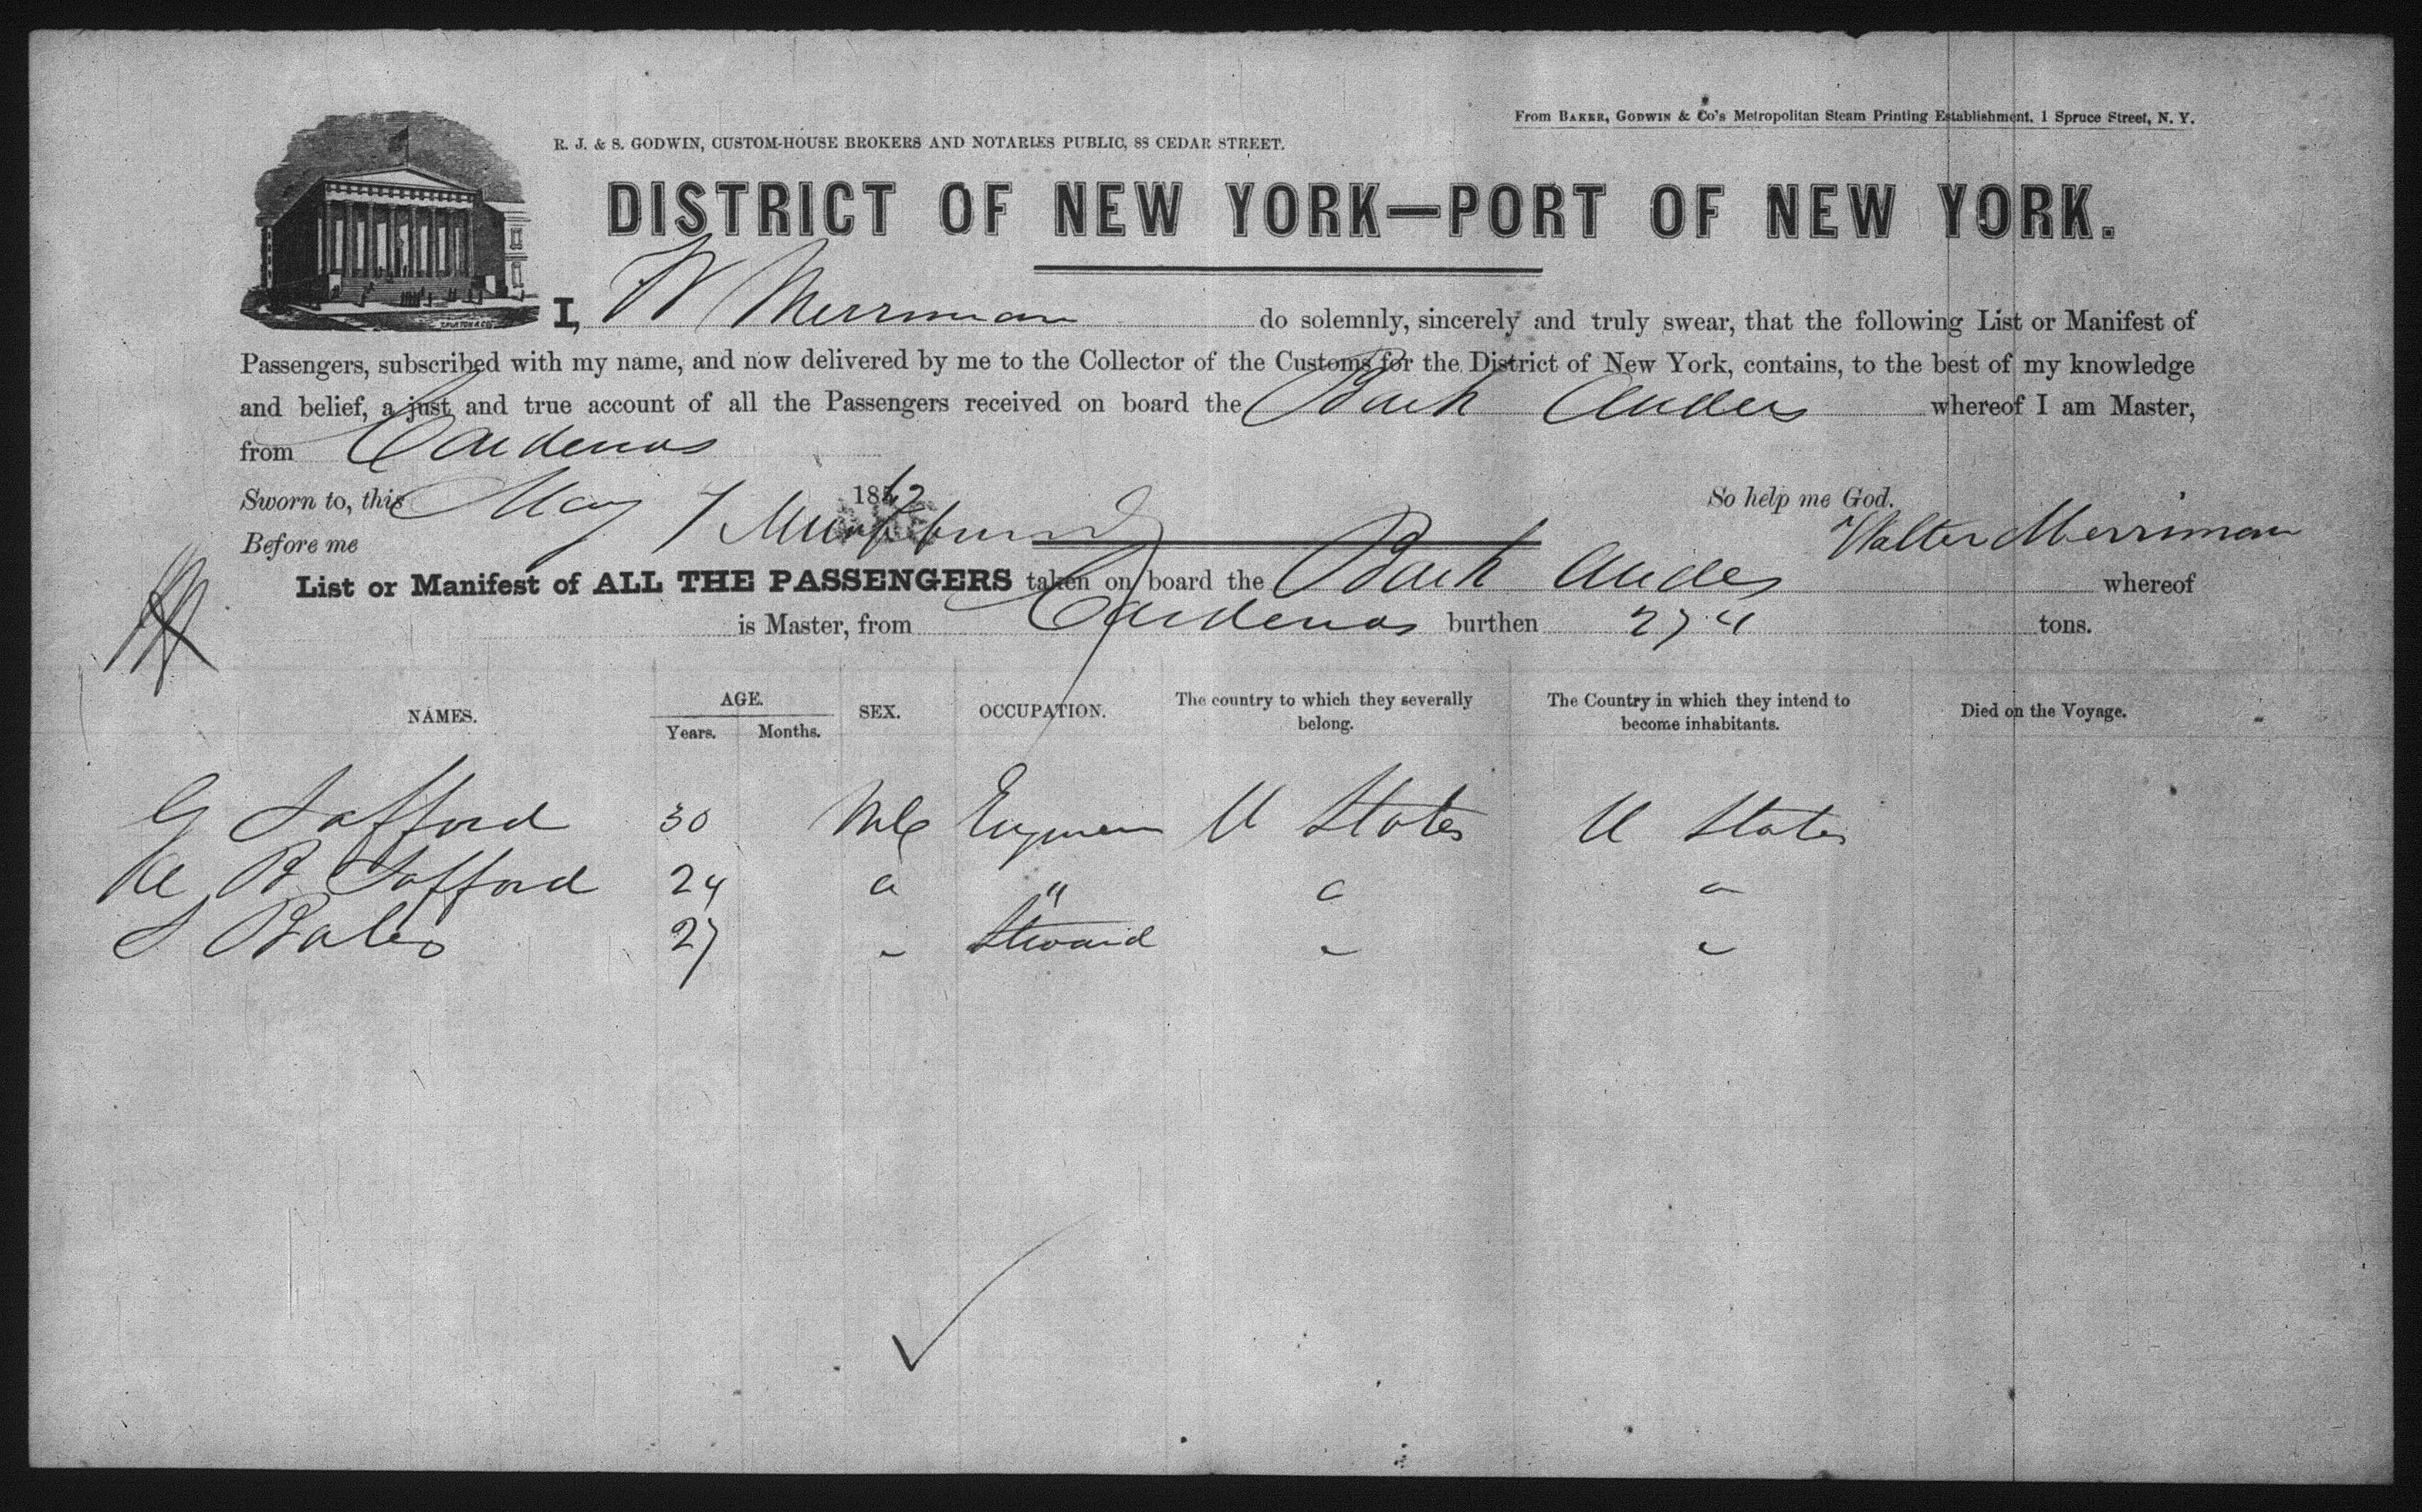 From BAKER, GODWIN & Co's Metropolitan Steam Printing Establishment, 1 Spruce Street, N. Y.
R. J. & S. GODWIN, CUSTOM-HOUSE BROKERS AND NOTARIES PUBLIC, 88 CEDAR STREET.
DISTRICT OF NEW YORK—PORT OF NEW YORK.
I, W Merriman do solemnly, sincerely and truly swear, that the following List or Manifest of
Passengers, subscribed with my name, and now delivered by me to the Collector of the Customs for the District of New York, contains, to the best of my knowledge
and belief, a just and true account of all the Passengers received on board the Bark Andes whereof I am Master,
from Cardenas
Sworn to, this May 7 1862 So help me God.
Before me Walter Merriman
List or Manifest of ALL THE PASSENGERS taken on board the Bark Andes whereof
is Master, from Cardenas burthen 274 tons.
NAMES. AGE. Years. Months. SEX. OCCUPATION. The country to which they severally belong. The Country in which they intend to become inhabitants. Died on the Voyage.
G Safford 30 Mle Engineer U States U States
B Safford 24 " " " "
S Bales 27 " Steward " "